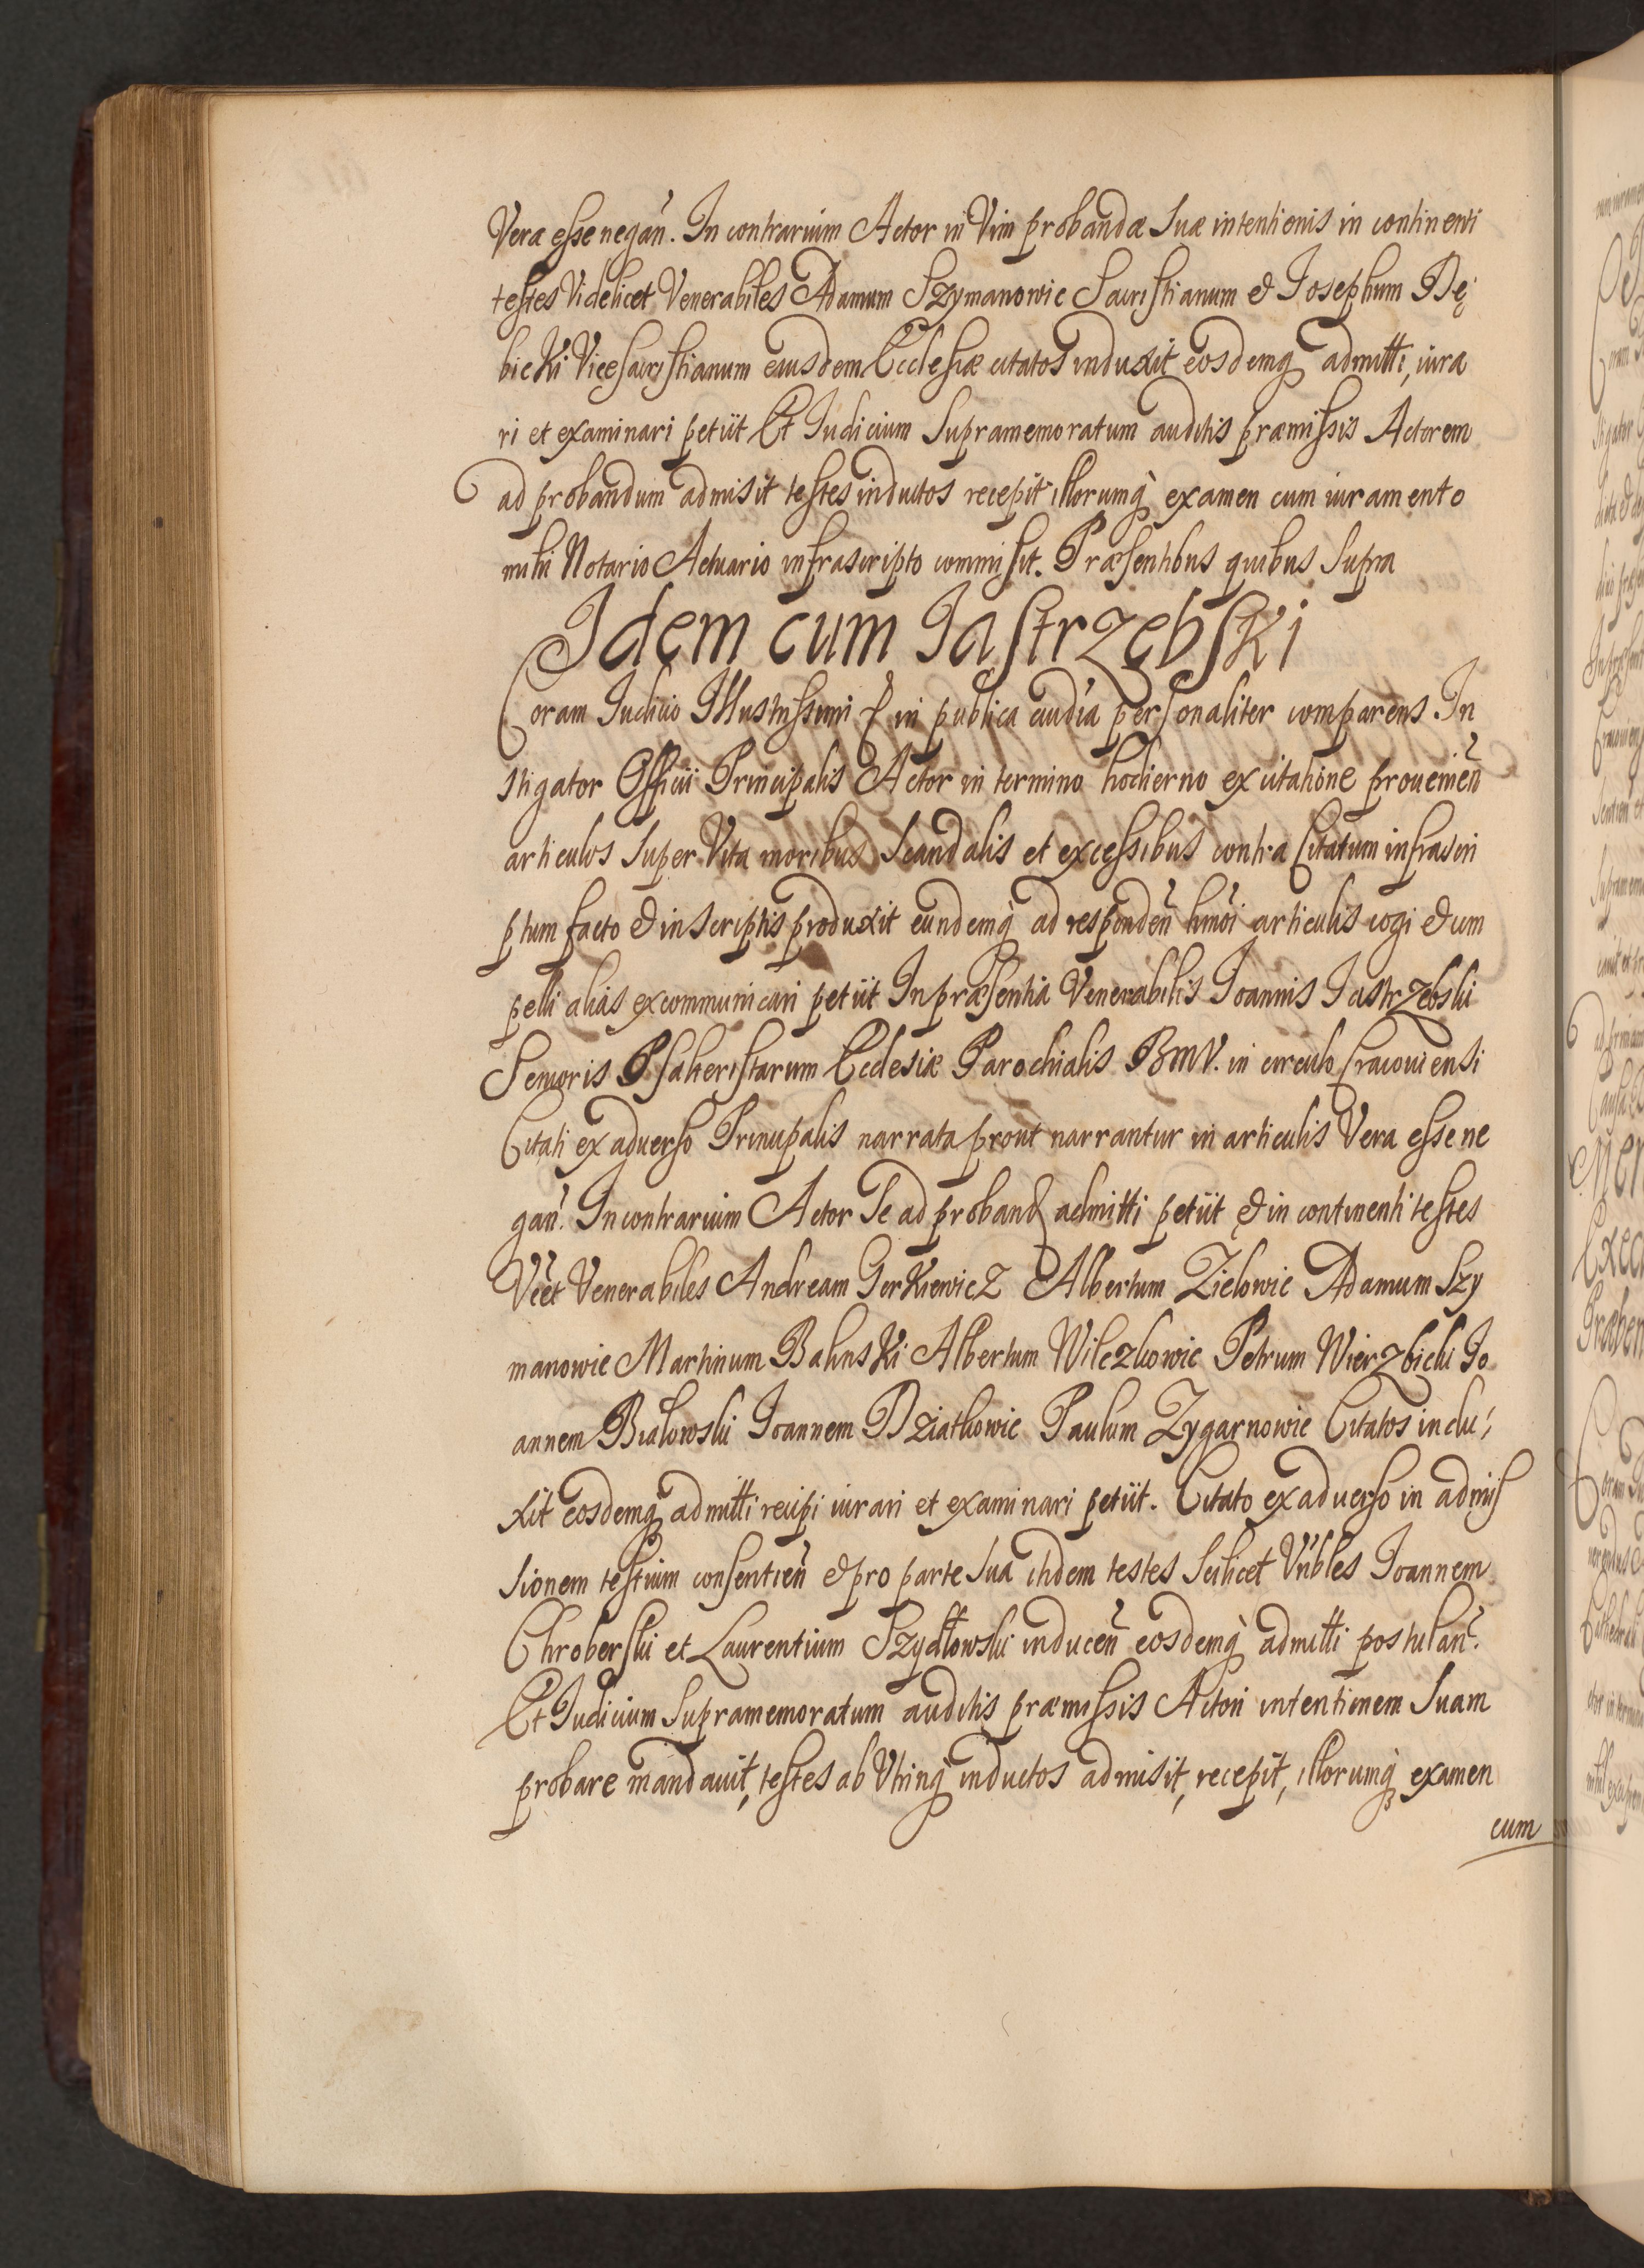 Vera esse negan̄. In contrarium Actor in Vim probandæ Suæ intentionis in continenti
testes Videlicet Venerabiles Adamum Szymanowic Sacristianum & Josephum Dę
bicki Vicesacristianum eiusdem Ecclesiæ citatos induxit eosdemq̀ admitti, iura
ri et examinari petiit Et Judicium Supramemoratum auditis præmissis Actorem
ad probandum admisit testes inductos recepit illorumq̀ examen cum iuramento
mihi Notario Actuario infrascripto commisit. Præsentibus quibus Supra
Idem cum Jastrzębski
Coram Judicio Illustrissimi & in publica audīa personaliter comparens In
stigator Officii Principalis Actor in termino hodierno ex citatione provenien̄
articulos Super Vita moribus Scandalis et excessibus contra Citatum infrascri
ptum facto & in Scriptis produxit eundemq̀ ad responden̄ hm̄oi articulis cogi & com
pelli aliàs excommunicari petiit In præsentia Venerabilis Joannis Jastrzębski
Senioris Psalteristarum Ecclesiæ Parochialis BMV. in circulo Cracoviensi
Citati ex adverso Principalis narrata prout narrantur in articulis Vera esse ne
gan̄. In contrarium Actor Se ad proband admitti petiit & in continenti testes
Vc̄et Venerabiles Andream Gerkiewicz Albertum Zielowic Adamum Szy
manowic Martinum Balinski Albertum Wilczkowic Petrum Wierzbicki Jo
annem Białowski Joannem Dziatkowic Paulum Zygarnowic Citatos indu
xit eosdemq̀ admitti recipi iurari et examinari petiit. Citato ex adverso in admis
sionem testium consentien̄ & pro parte Sua itidem testes Scilicet Vn̄bles Joannem
Chroberski et Laurentium Szydłowski inducen̄ eosdemq̀ admitti postulan̄.
Et Judicium Supramemoratum auditis præmissis Actori intentionem Suam
probare mandavit, testes ab Utrinq̀ inductos admisit, recepit, illorumq̀ examen
cum